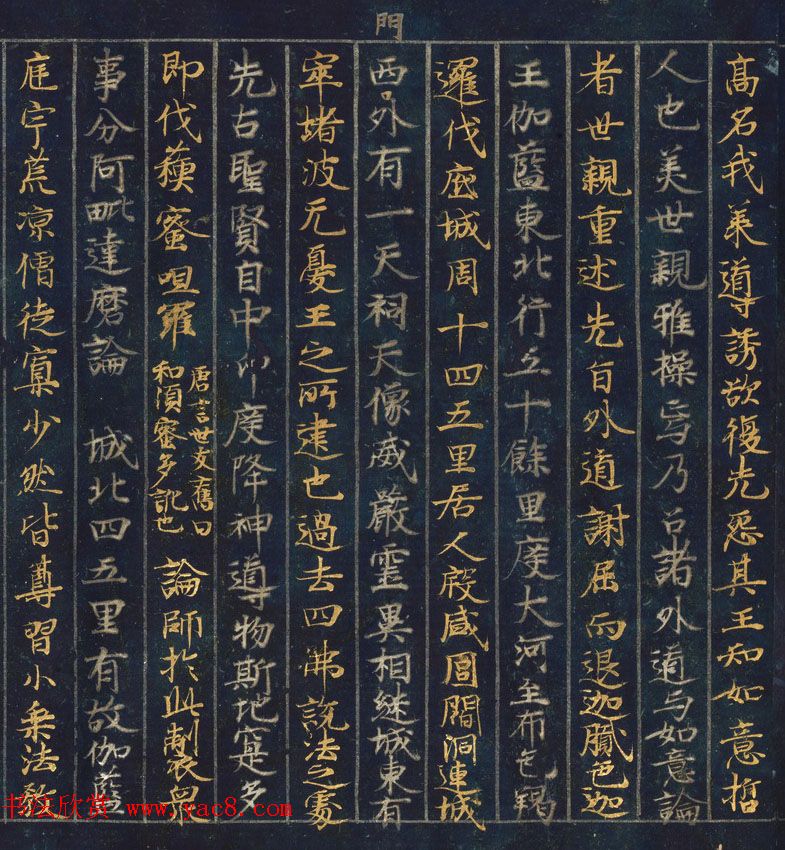 門
高名我弟導誘欲復先惡其王知如意哲
人也美世親雅操焉乃召諸外道与如意論
者世親重述先旨外道謝屈而退迦膩色迦
王伽藍東北行五十餘里度大河至布色羯
邏伐底城周十四五里居人殷盛閭閻洞連城
西外有一天祠天像威嚴靈異相継城東有
窣堵波无憂王之所建也過去四佛說法之處
先古聖賢自中印度降神導物斯地寔多
即伐蘓蜜呾羅唐言世友舊曰和須蜜多訛也論師於此製衆
事分阿毗達磨論 城北四五里有故伽藍
庭宇荒凉僧徒寡少然皆尊習小乗法教
书法欣赏 www.yac8.com